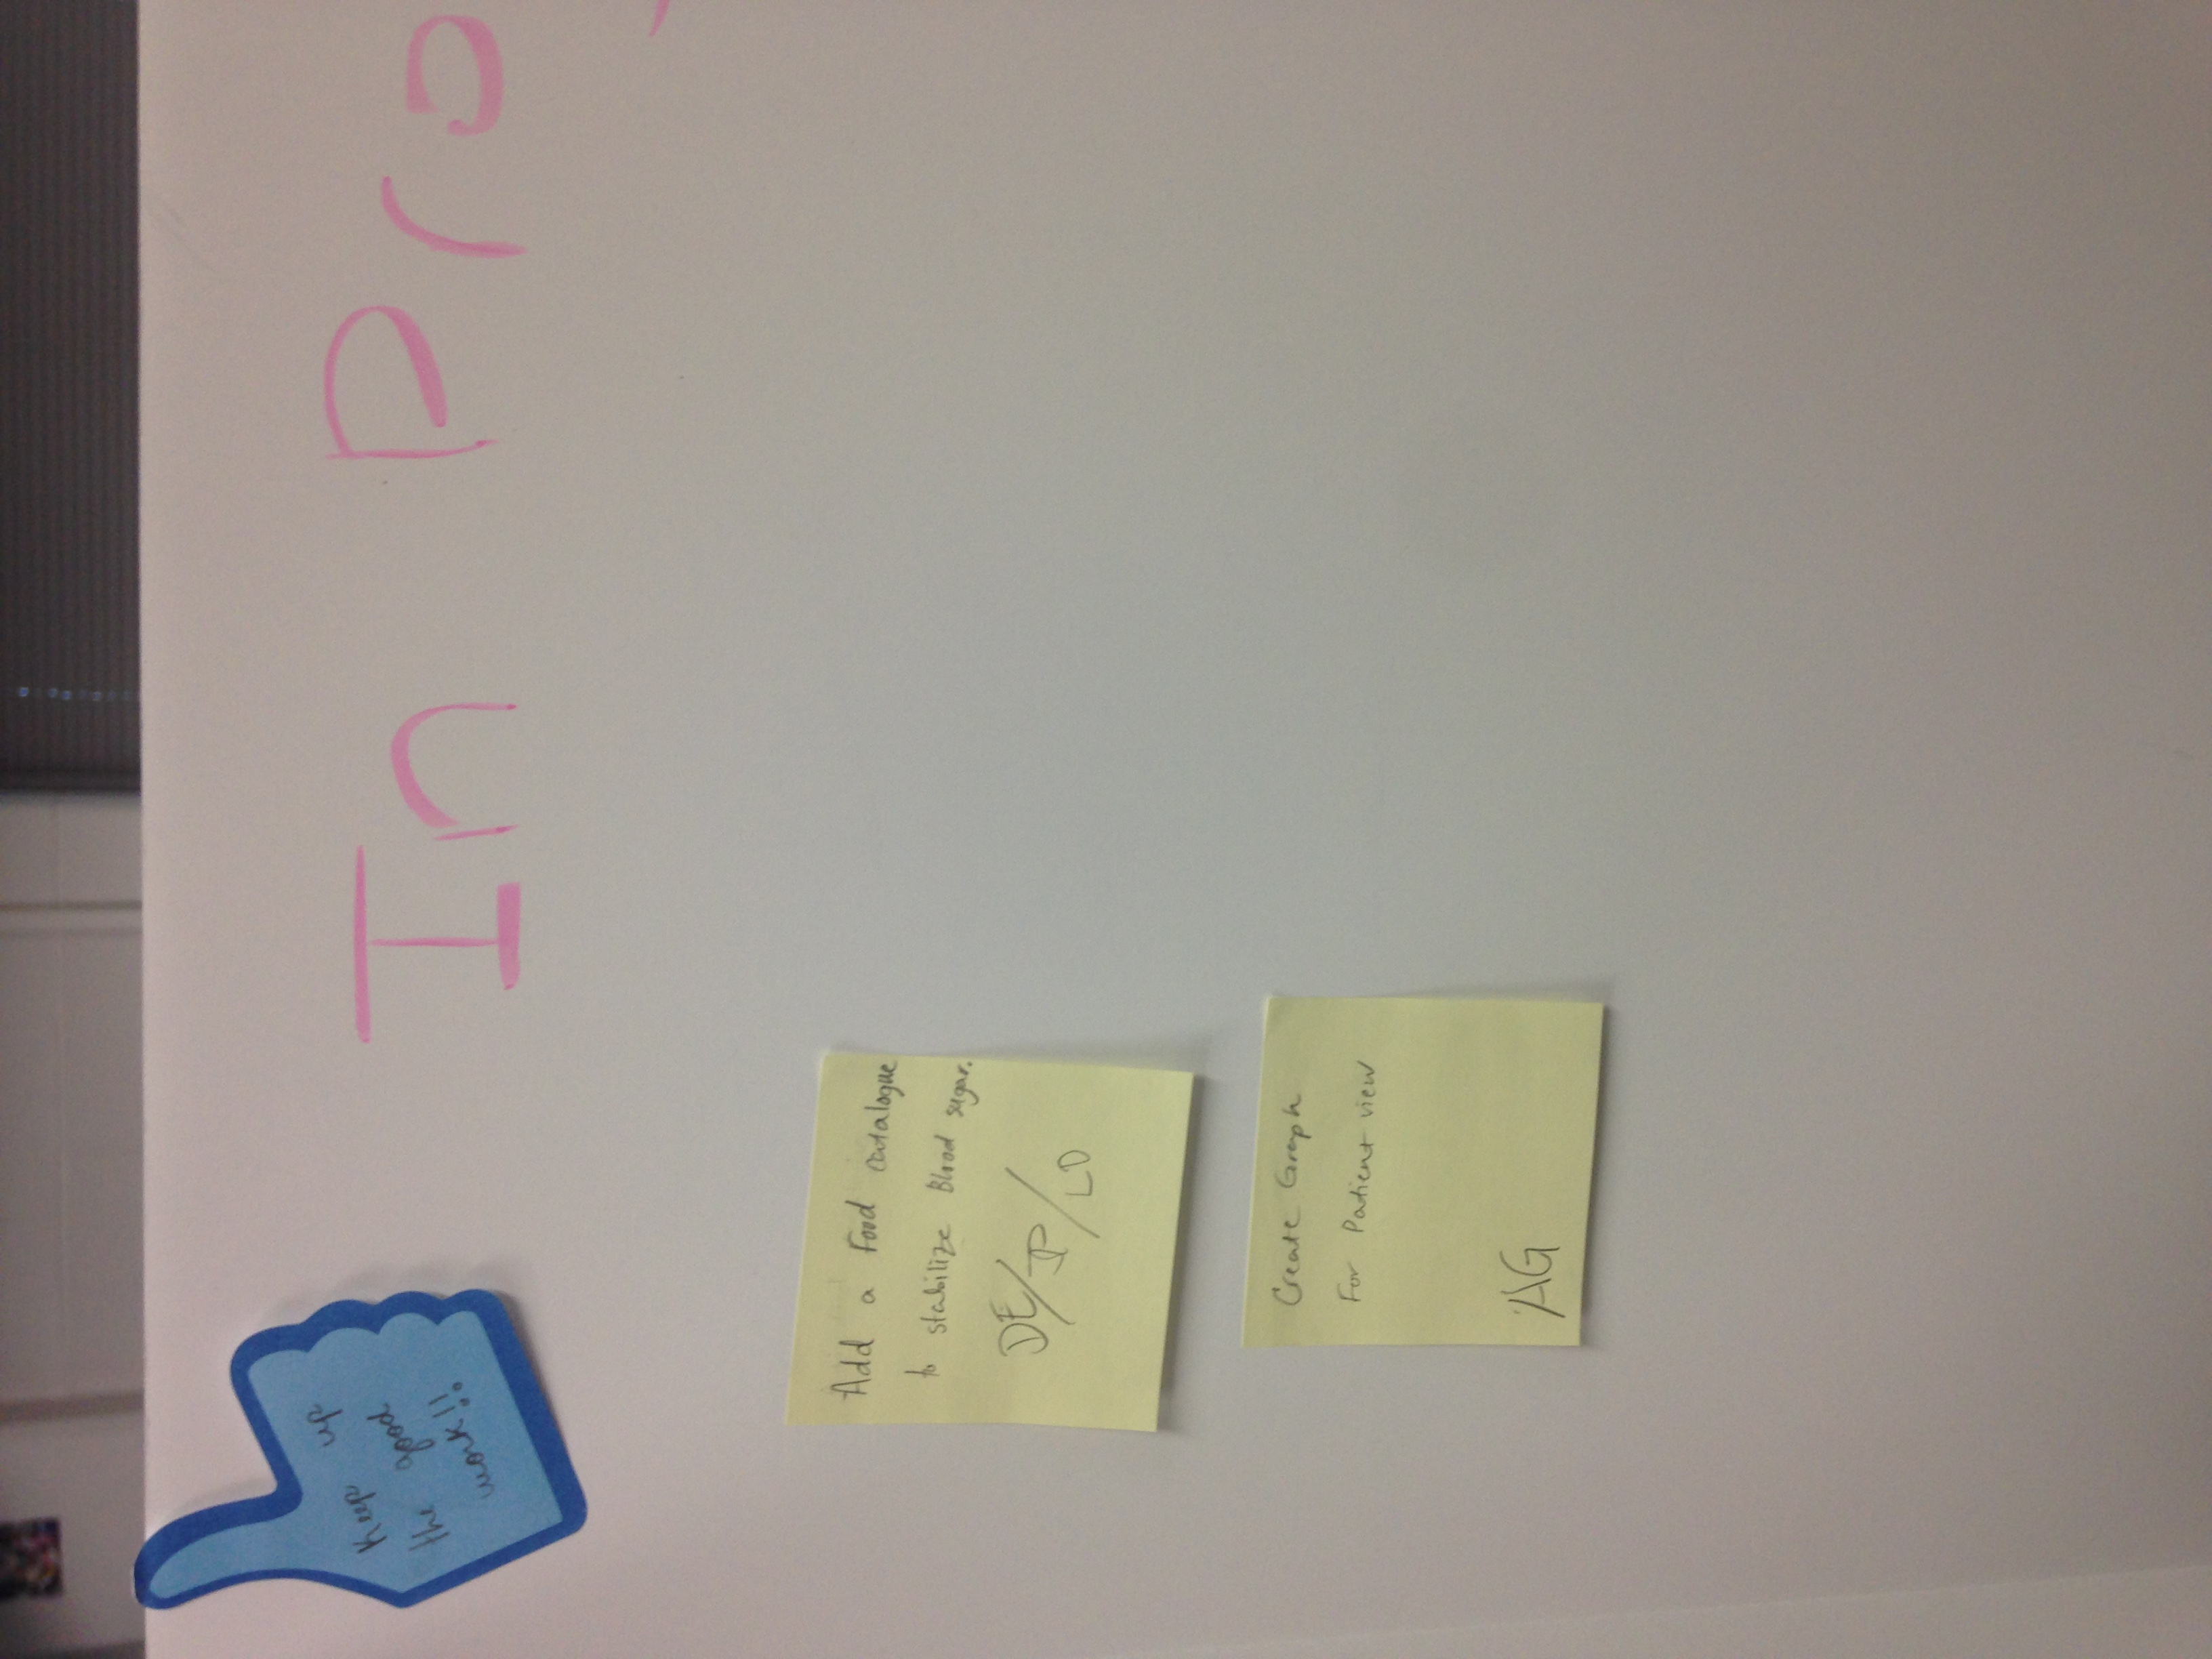 Keep up
the good
work!!
In Pro
Add a Food catalogue
to stabilize Blood sugar.
DE/JP/LD
Create Graph
For Patient view
AG